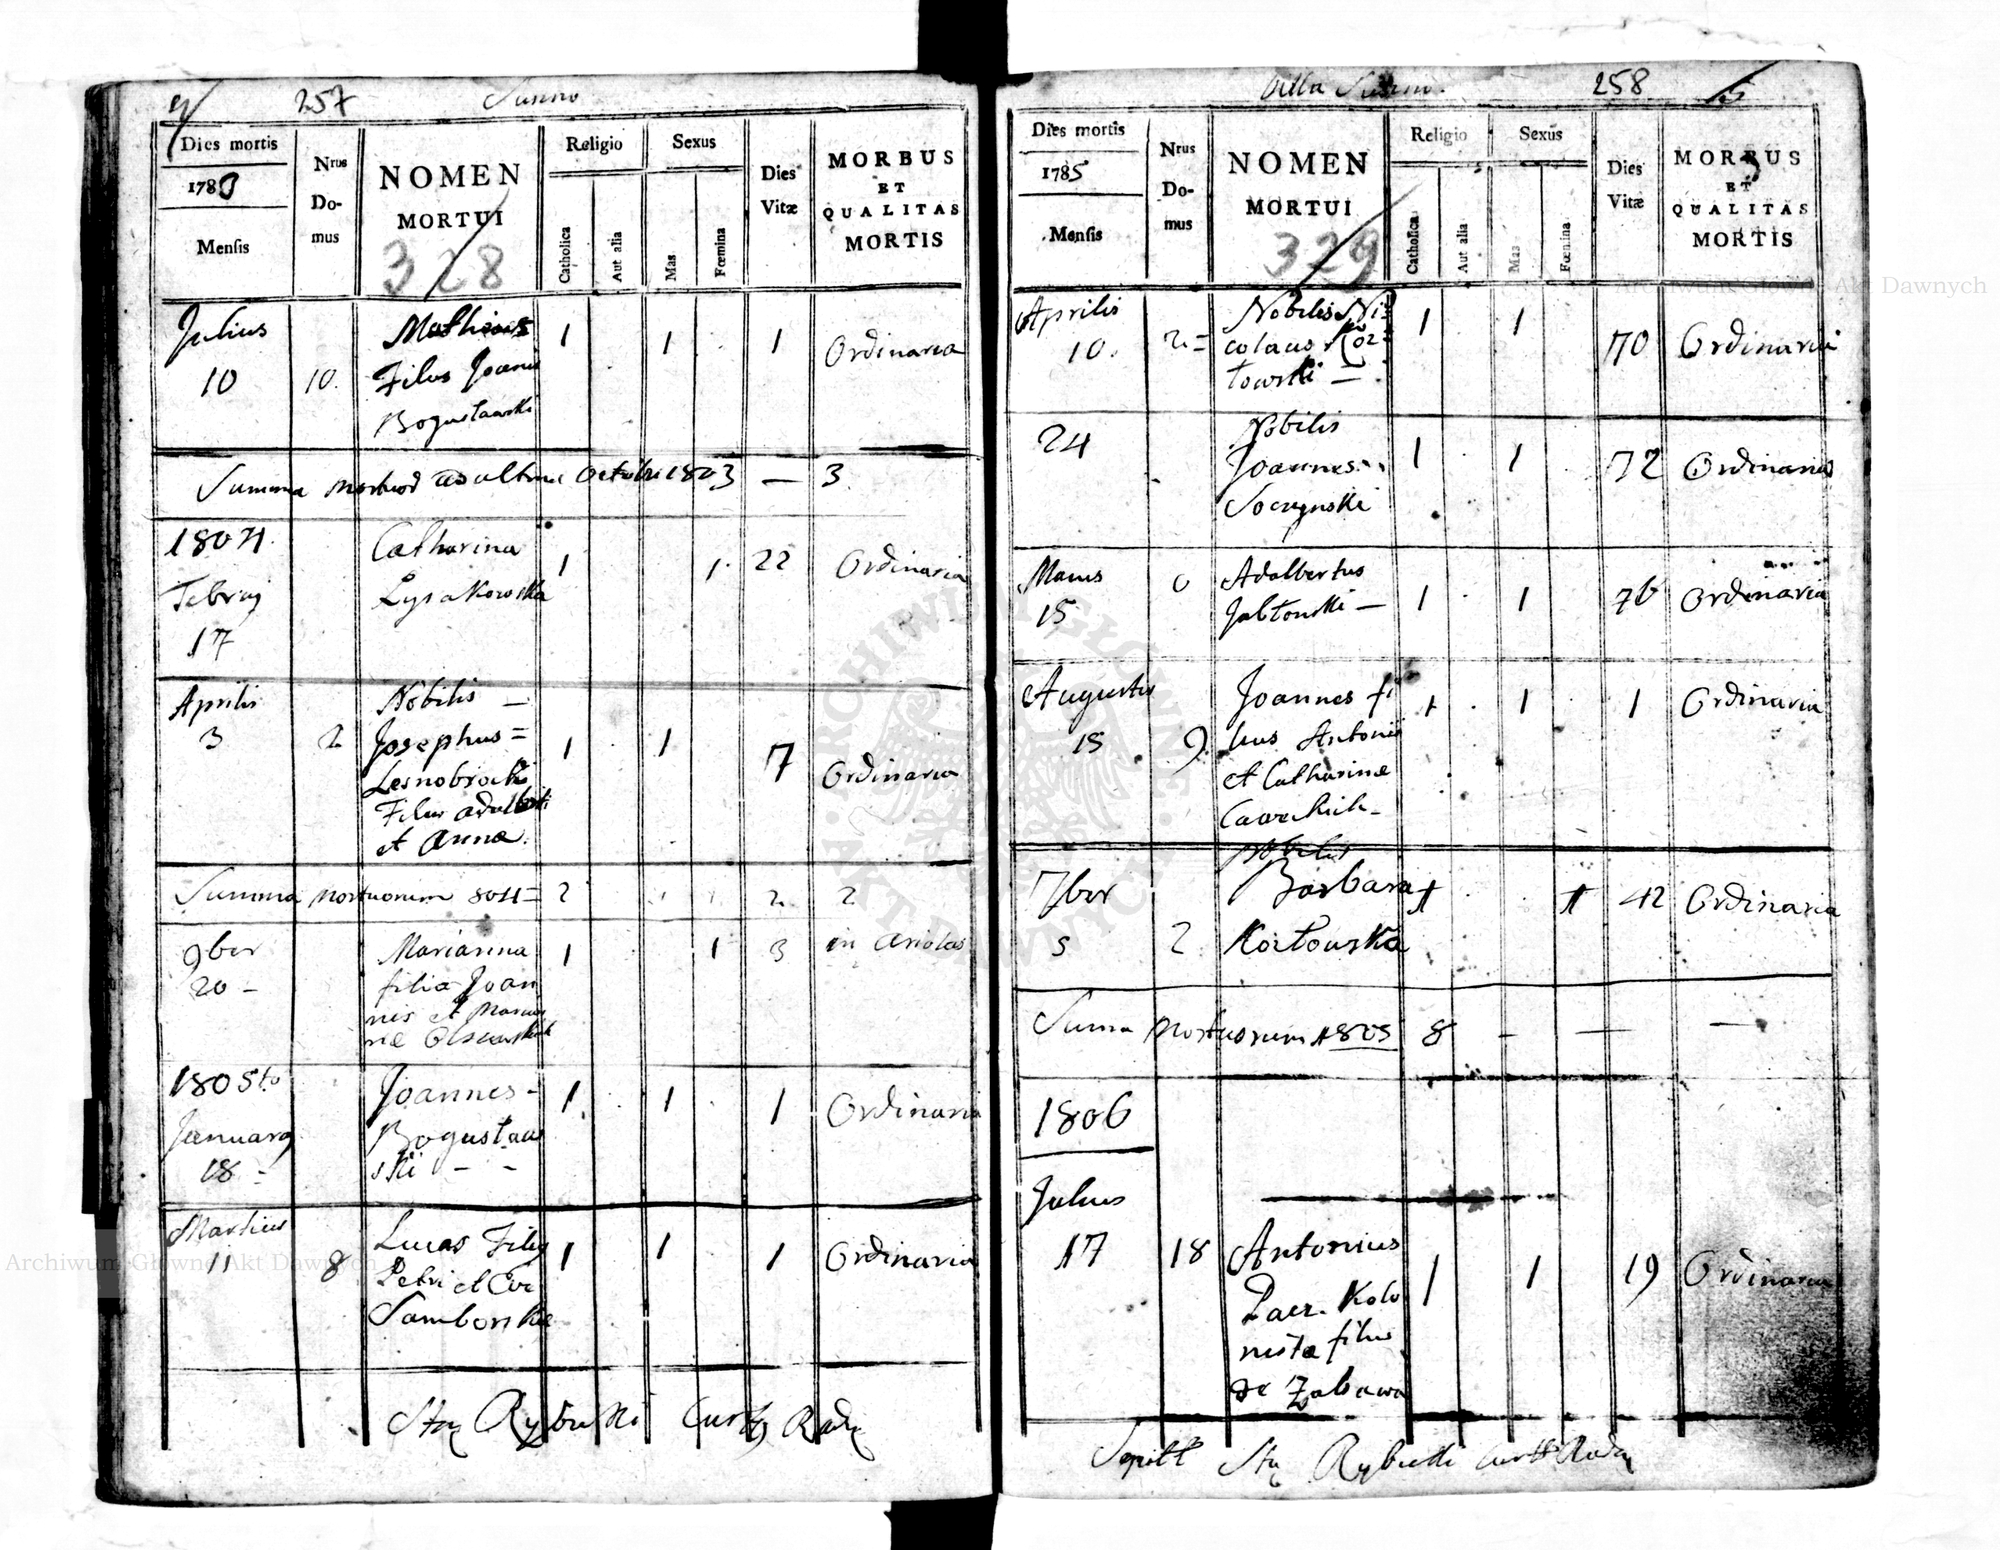 4 257 Susno
Dies mortis
1783
Mensis
Nrus
Do-
mus
NOMEN
MORTUI
328
Religio
Catholica
Aut alia
Sexus
Mas
Fœmina
Dies
Vitæ
MORBUS
ET
QUALITAS
MORTIS
Julius
10
10.
Mathias
Filus Joanis
Bogusławski
1 1 1 Ordinaria
Summa ad ultima 1803 — 3.
1804
Febrarj
17
Catharina
Lysakowska
1 1 22 Ordinaria
Aprilis
3
2
Nobilis —
Josephus =
Lesnobrocki
Filus adalberti
et Anna.
1 1 7 Ordinaria
Summa mortuorum 804 = 2 1 1 2 2
9ber
20 -
Marianna
filia Joan
nis et
1 1 3 in
1805to
January
18 -
Joannes -
Bogusław
ski - -
1 1 1 Ordinaria
Martius
11
8
Lucas Filus
Petri et
Samborskie
1 1 1 Ordinaria
Rybicki
Villa Susno. 258 5
Dies mortis
1785
Mensis
Nrus
Do-
mus
NOMEN
MORTUI
329
Religio
Catholica
Aut alia
Sexus
Mas
Fœmina
Dies
Vitæ
MORBUS
ET
QUALITAS
MORTIS
Aprilis
10.
2 =
Nobilis Ni
colaus Koz
łowski —
1 1 70 Ordinaria
24
Nobilis
Joannes
Soczynski
1 1 72 Ordinaria
Maius
15
0
Adalbertus
Jabłonski —
1 1 76 Ordinaria
Augustus
15
9
Joannes fi
lius Antonii
et Catharinæ
1 1 1 Ordinaria
7ber
5
2
nobilis
Barbara
Kozłowska
1 1 42 Ordinaria
Suma Mortuorum 1805 8 - — —
1806
Julius
17
18
Antonius
Paez. Kolo
nista filius
de Zabawa
1 1 19 Ordinaria
Rybicki
Archiwum Główne Akt Dawnych
Archiwum Główne Akt Dawnych
ARCHIWUM GŁÓWNE
AKT DAWNYCH